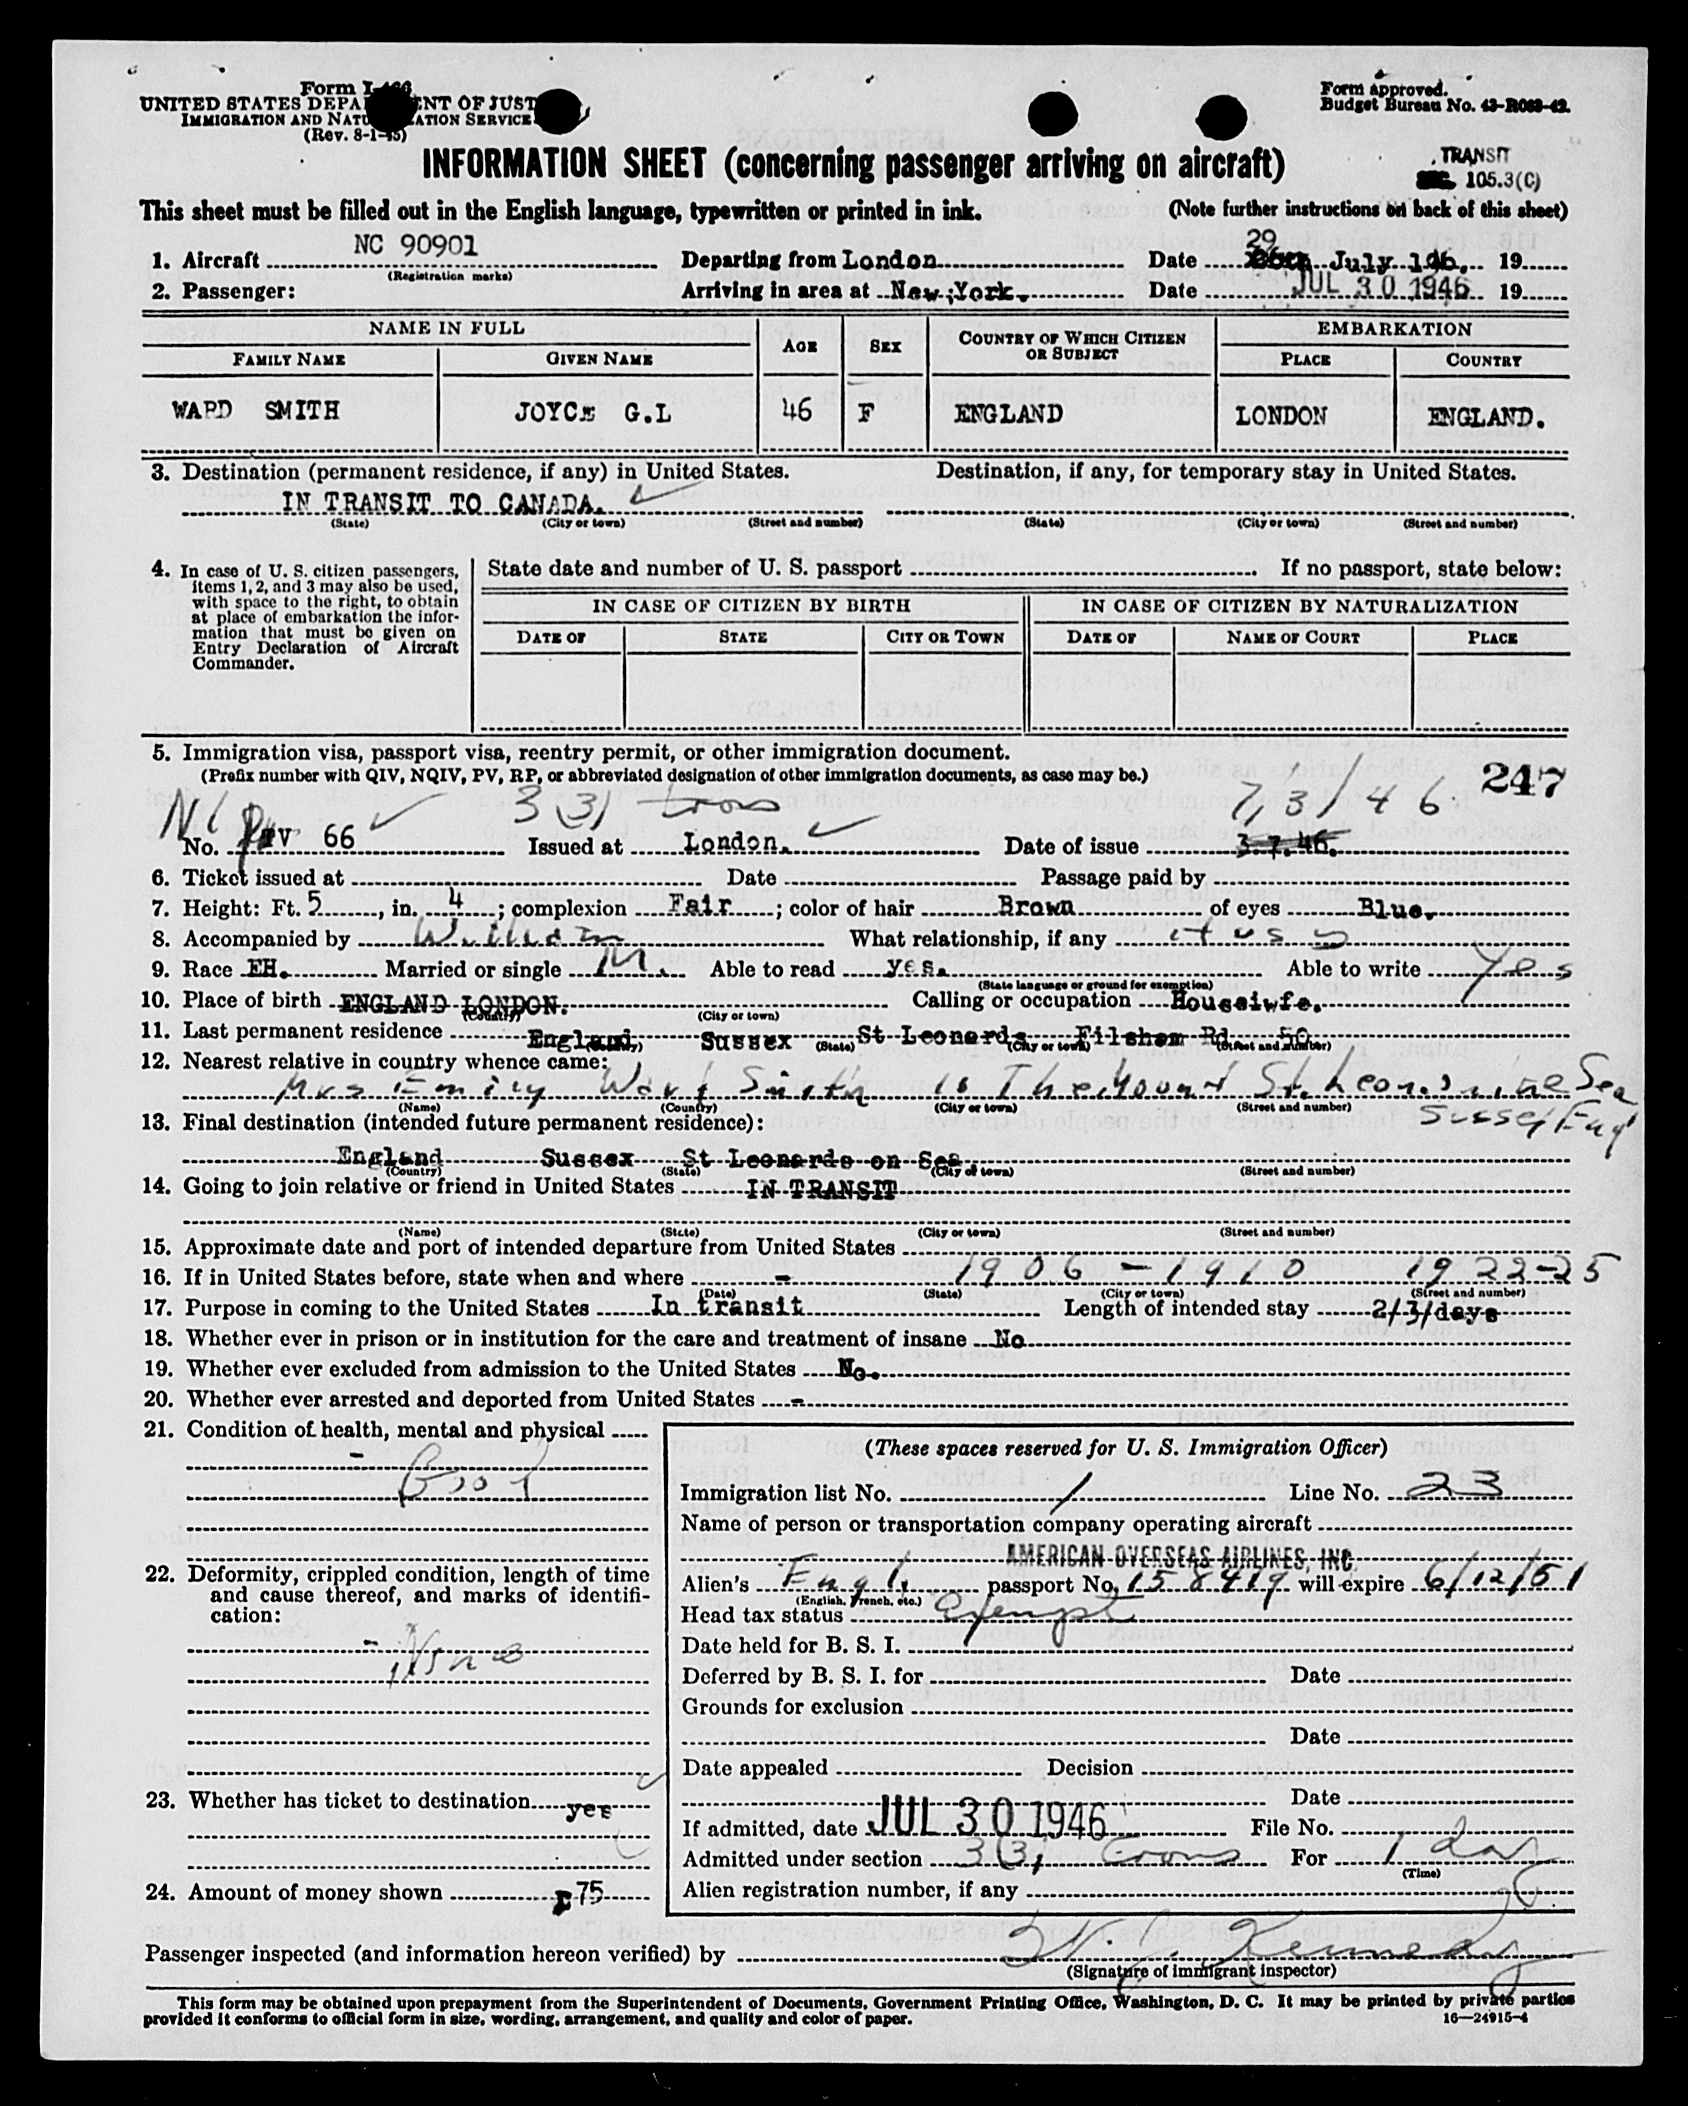 Form I-466
UNITED STATES DEPARTMENT OF JUSTICE
IMMIGRATION AND NATURALIZATION SERVICE
(Rev. 8-1-45)
Form approved.
Budget Bureau No. 43-R063-42.
INFORMATION SHEET (concerning passenger arriving on aircraft)
TRANSIT
SEC. 105.3(C)
This sheet must be filled out in the English language, typewritten or printed in ink. (Note further instructions on back of this sheet)
1. Aircraft NC 90901 Departing from London Date 29 July 196. 19
(Registration marks)
2. Passenger: Arriving in area at New York. Date JUL 30 1946 19
NAME IN FULL AGE SEX COUNTRY OF WHICH CITIZEN OR SUBJECT EMBARKATION
FAMILY NAME GIVEN NAME PLACE COUNTRY
WARD SMITH JOYCE G.L 46 F ENGLAND LONDON ENGLAND.
3. Destination (permanent residence, if any) in United States. Destination, if any, for temporary stay in United States.
IN TRANSIT TO CANADA.
(State) (City or town) (Street and number) (State) (City or town) (Street and number)
4. In case of U. S. citizen passengers, items 1, 2, and 3 may also be used, with space to the right, to obtain at place of embarkation the information that must be given on Entry Declaration of Aircraft Commander.
State date and number of U. S. passport If no passport, state below:
IN CASE OF CITIZEN BY BIRTH IN CASE OF CITIZEN BY NATURALIZATION
DATE OF STATE CITY OR TOWN DATE OF NAME OF COURT PLACE
5. Immigration visa, passport visa, reentry permit, or other immigration document.
(Prefix number with QIV, NQIV, PV, RP, or abbreviated designation of other immigration documents, as case may be.)
247
3(3) trans 7/3/46
No. V 66 Issued at London. Date of issue 3.7.46.
6. Ticket issued at Date Passage paid by
7. Height: Ft. 5, in. 4; complexion Fair; color of hair Brown of eyes Blue.
8. Accompanied by William What relationship, if any
9. Race EH. Married or single M. Able to read yes. Able to write Yes
(State language or ground for exemption)
10. Place of birth ENGLAND LONDON. Calling or occupation Houseiwfe.
(Country) (City or town)
11. Last permanent residence England Sussex St Leonards Filsham Rd 50
(Country) (State) (City or town) (Street and number)
12. Nearest relative in country whence came:
Mrs Emily Ward Smith 16 The Mount St. Leonards Sea
Sussex Eng
(Name) (Country) (City or town) (Street and number)
13. Final destination (intended future permanent residence):
England Sussex St Leonards on Sea
(Country) (State) (City or town) (Street and number)
14. Going to join relative or friend in United States IN TRANSIT
(Name) (State) (City or town) (Street and number)
15. Approximate date and port of intended departure from United States
16. If in United States before, state when and where - 1906 - 1910 1922-25
(Date) (State) (City or town) (Street and number)
17. Purpose in coming to the United States In transit Length of intended stay 2/3/days
18. Whether ever in prison or in institution for the care and treatment of insane No
19. Whether ever excluded from admission to the United States No.
20. Whether ever arrested and deported from United States -
21. Condition of health, mental and physical
- Good
22. Deformity, crippled condition, length of time and cause thereof, and marks of identification:
- None
23. Whether has ticket to destination yes
24. Amount of money shown £75
(These spaces reserved for U. S. Immigration Officer)
Immigration list No. 1 Line No. 23
Name of person or transportation company operating aircraft
AMERICAN OVERSEAS AIRLINES, INC.
Alien's Engl. passport No. 158419 will expire 6/12/51
(English, French, etc.)
Head tax status Exempt
Date held for B. S. I.
Deferred by B. S. I. for Date
Grounds for exclusion
Date
Date appealed Decision
Date
If admitted, date JUL 30 1946 File No.
Admitted under section 3(3) trans For 1 day
(Time)
Alien registration number, if any
Passenger inspected (and information hereon verified) by Kennedy
(Signature of immigrant inspector)
This form may be obtained upon prepayment from the Superintendent of Documents, Government Printing Office, Washington, D. C. It may be printed by private parties
provided it conforms to official form in size, wording, arrangement, and quality and color of paper. 16—24915-4